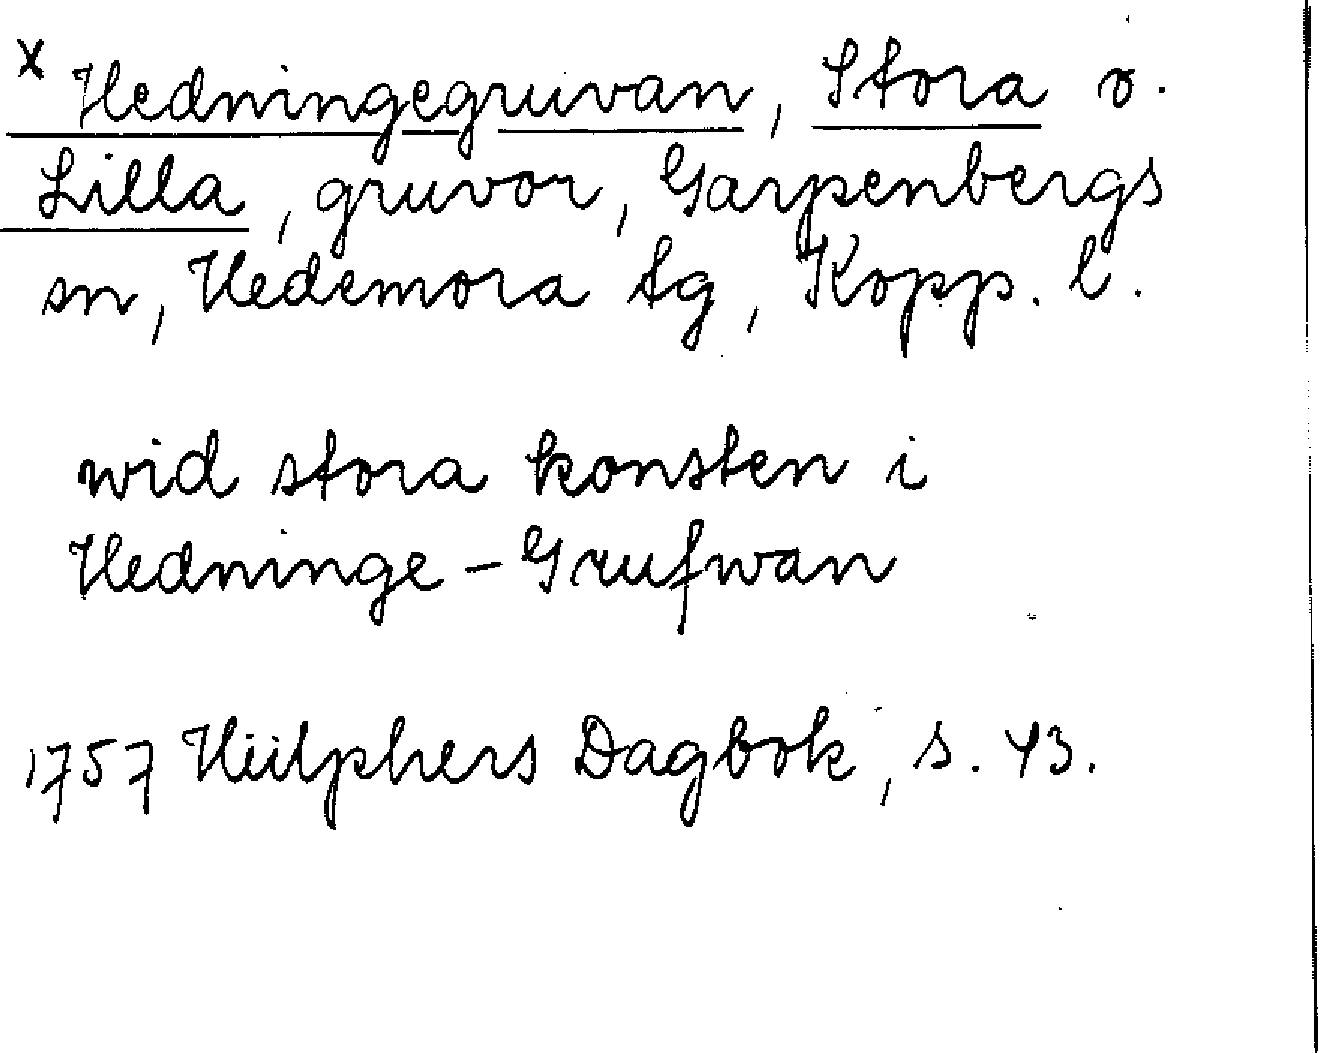 x Hedningegruvan, Stora o.
Lilla, gruvor, Garpenbergs
sn, Hedemora tg, Kopp. l.
wid stora konsten i
Hedninge-Grufwan
1757 Hülphers Dagbok, s. 43.